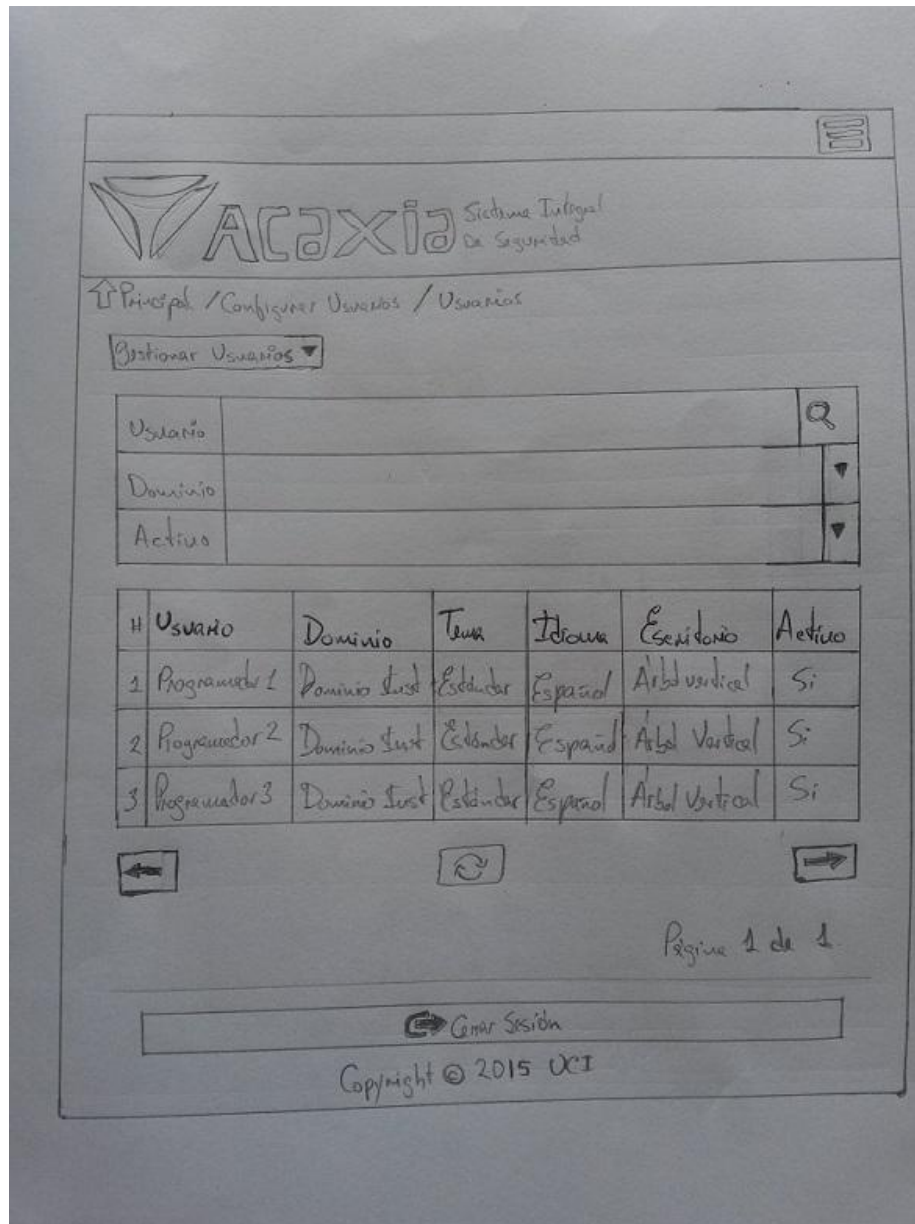 Acaxia Sistema Integral
De Seguridad
Principal / Configurar Usuarios / Usuarios
Gestionar Usuarios
Usuario
Dominio
Activo
# Usuario Dominio Tema Idioma Escritorio Activo
1 Programador 1 Dominio Inst Estándar Español Árbol vertical Si
2 Programador 2 Dominio Inst Estándar Español Árbol Vertical Si
3 Programador 3 Dominio Inst Estándar Español Árbol Vertical Si
Página 1 de 1
Cerrar Sesión
Copyright © 2015 UCI